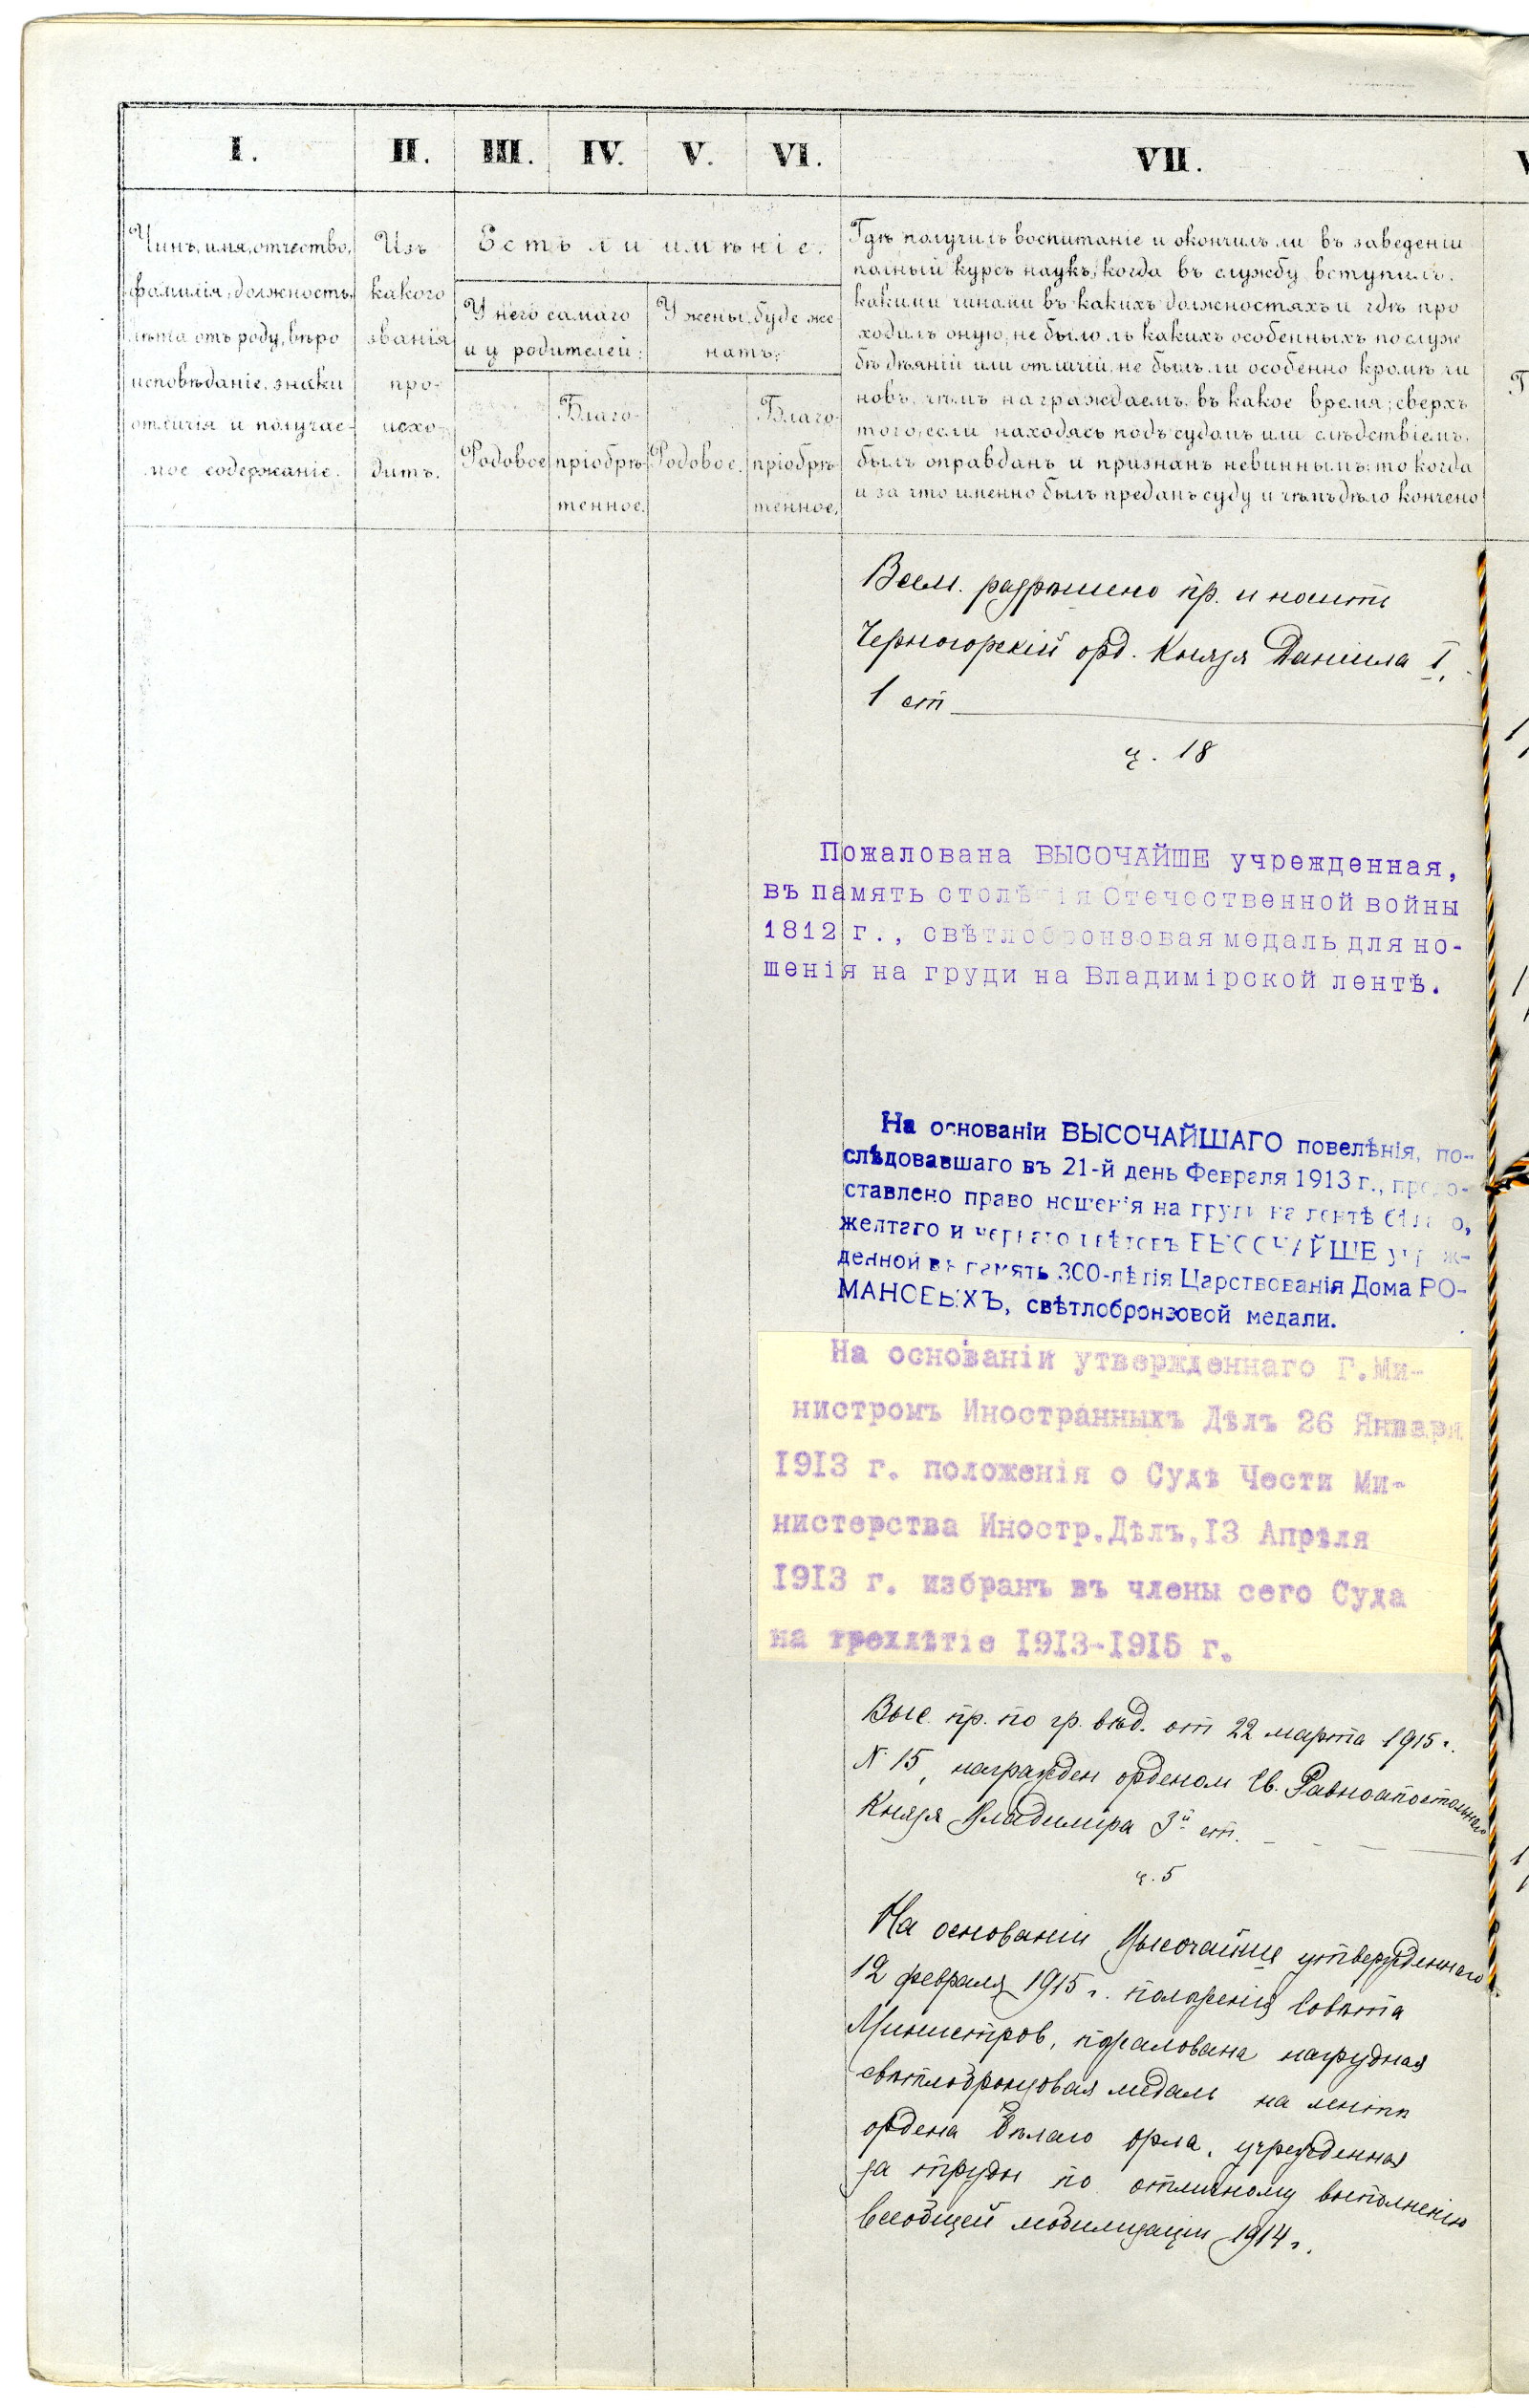 I.
II.
III.
IV.
V.
VI.
VII.
Чинъ, имя, отчество,
фамилія, должность,
лѣта отъ роду, вѣро
исповѣданіе, знаки
отличія и получае-
мое содержаніе.
Изъ
какого
званія
про-
исхо-
дитъ.
Есть ли имѣніе.
У него самаго
и у родителей:
У жены, буде же
натъ:
Родовое
Благо-
пріобрѣ
тенное.
Родовое.
Благо-
пріобрѣ
тенное.
Гдѣ получилъ воспитаніе и окончилъ ли въ заведеніи
полный курсъ наукъ, когда въ службу вступилъ,
какими чинами въ какихъ должностяхъ и гдѣ про
ходилъ оную, не было ль какихъ особенныхъ по служ
бѣ дѣяній или отличій, не былъ ли особенно кромѣ чи
новъ, чѣмъ награждаемъ, въ какое время; сверхъ
того, если находясь подъ судомъ или слѣдствіемъ,
былъ оправданъ и признанъ невиннымъ: то когда
и за что именно былъ преданъ суду и чѣмъ дѣло кончено
Всем. разрѣшено пр. и носить
Черногорскій орд. Князя Даніила I,
1 ст
ч. 18
Пожалована ВЫСОЧАЙШЕ учрежденная,
въ память столѣтія Отечественной войны
1812 г., свѣтлобронзовая медаль для но-
шенія на груди на Владимірской лентѣ.
На основаніи ВЫСОЧАЙШАГО повелѣнія, по-
слѣдовавшаго въ 21-й день Февраля 1913 г., предо-
ставлено право ношенія на груди на лентѣ бѣлаго,
желтаго и чернаго цвѣтовъ ВЫСОЧАЙШЕ учреж-
денной въ память 300-лѣтія Царствованія Дома РО-
МАНОВЫХЪ, свѣтлобронзовой медали.
На основаніи утвержденнаго Г.Ми-
нистромъ Иностранныхъ Дѣлъ 26 Января
1913 г. положенія о Судѣ Чести Ми-
нистерства Иностр.Дѣлъ, 13 Апрѣля
1913 г. избранъ въ члены сего Суда
на трехлѣтіе 1913-1915 г.
Выс. пр. по гр. вѣд. от 22 марта 1915 г.
N 15, награжден орденом Св. Равноапостольнаго
Князя Владиміра 3й ст.
ч. 5
На основаніи Высочайше утвержденнаго
12 февраля 1915 г. положенія Совѣта
Министров, пожалована нагрудная
свѣтлобронзовая медаль на лентѣ
ордена Бѣлаго Орла, учрежденная
за труды по отличному выполненію
всеобщей мобилизаціи 1914 г.